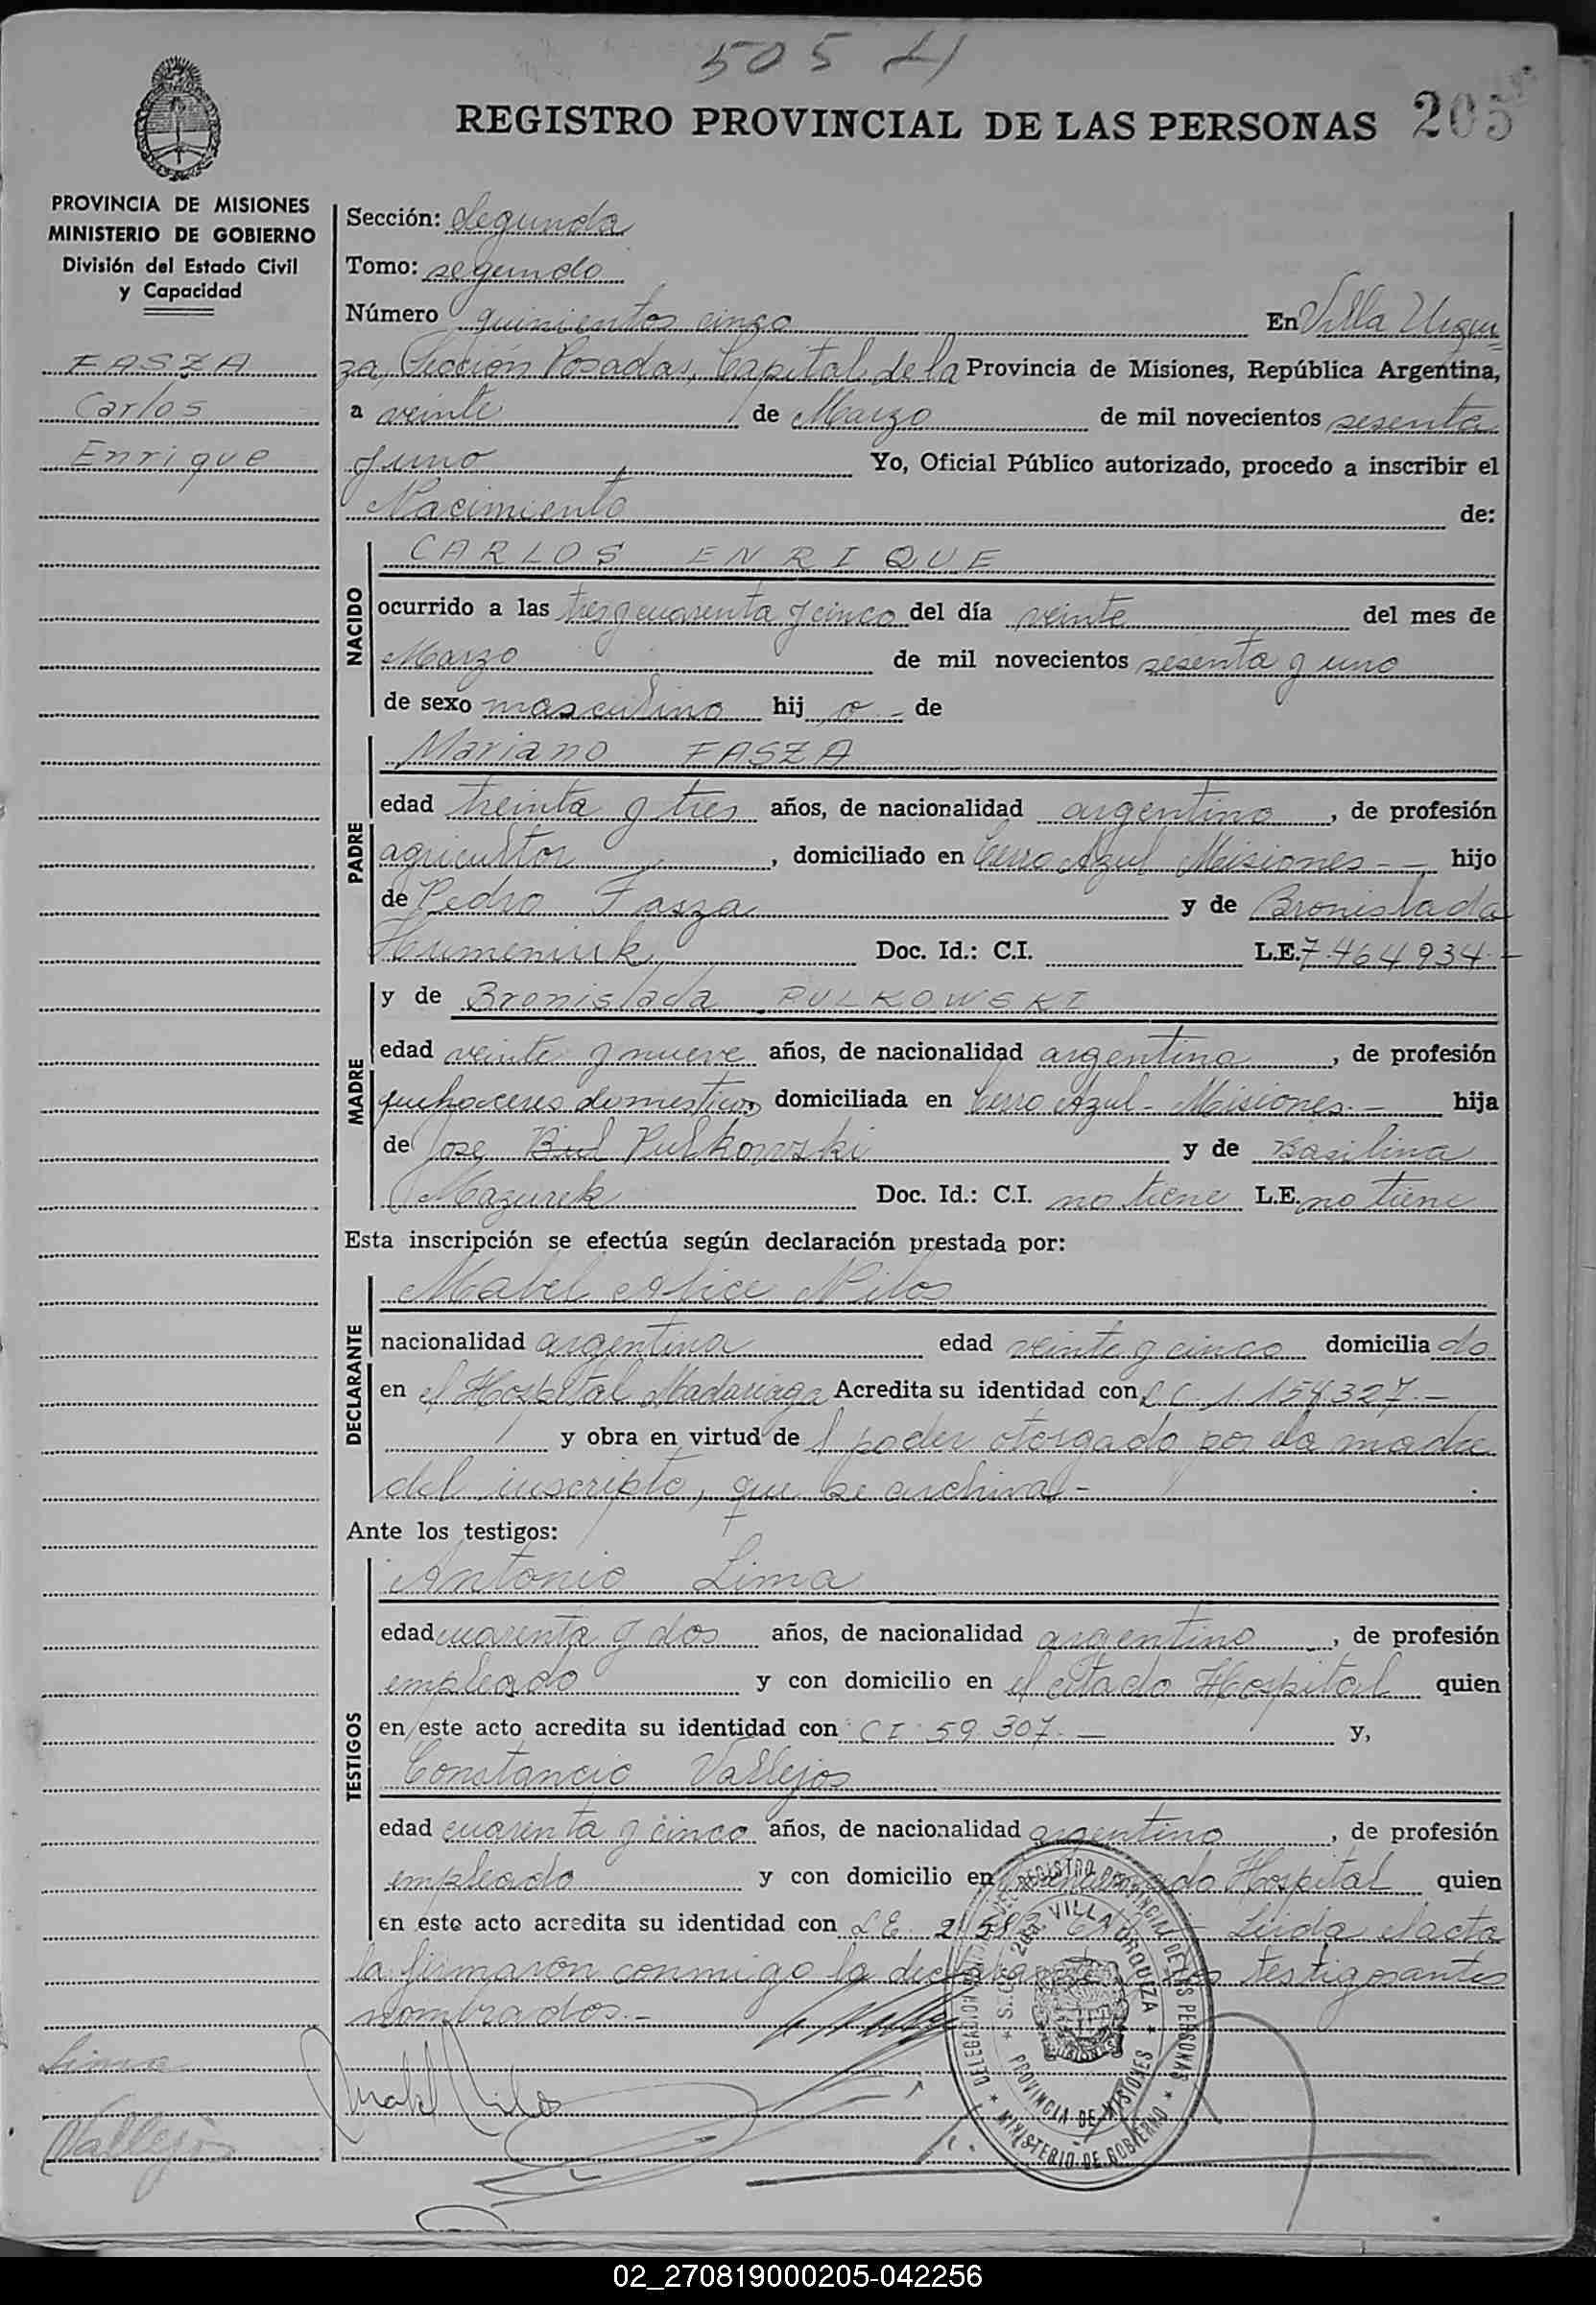 505
REGISTRO PROVINCIAL DE LAS PERSONAS 205
PROVINCIA DE MISIONES
MINISTERIO DE GOBIERNO
División del Estado Civil
y Capacidad
FASZA
Carlos
Enrique
Sección: Segunda
Tomo: segundo
Número quinientos cinco En Villa Urqui-
za, Sección Posadas, Capital de la Provincia de Misiones, República Argentina,
a veinte de Marzo de mil novecientos sesenta
y uno Yo, Oficial Público autorizado, procedo a inscribir el
Nacimiento de:
NACIDO
CARLOS ENRIQUE
ocurrido a las tres y cuarenta y cinco del día veinte del mes de
Marzo de mil novecientos sesenta y uno
de sexo masculino hij o - de
PADRE
Mariano FASZA
edad treinta y tres años, de nacionalidad argentino, de profesión
agricultor, domiciliado en Cerro Azul Misiones - - hijo
de Pedro Fasza y de Bronislada
Humeniuk Doc. Id.: C.I. L.E. 7.464.934.-
MADRE
y de Bronislada PULKOWSKI
edad veinte y nueve años, de nacionalidad argentina, de profesión
quehaceres domesticos domiciliada en Cerro Azul - Misiones.- hija
de Jose Pulkowski y de Basilina
Mazurek Doc. Id.: C.I. no tiene L.E. no tiene
Esta inscripción se efectúa según declaración prestada por:
DECLARANTE
Mabel Alice Nilos
nacionalidad argentina edad veinte y cinco domicilia da
en el Hospital Madariaga Acredita su identidad con L.C. 1.154.327.-
y obra en virtud de l poder otorgado por la madre
del inscripto, que se archiva -
Ante los testigos:
TESTIGOS
Antonio Lima
edad cuarenta y dos años, de nacionalidad argentino, de profesión
empleado y con domicilio en el citado Hospital quien
en este acto acredita su identidad con C I 59.307.- y,
Constancio Vallejos
edad cuarenta y cinco años, de nacionalidad argentino, de profesión
empleado y con domicilio en Hospital quien
en este acto acredita su identidad con L.E. 2 - Leida el acta
la firmaron conmigo la declarante y los testigos antes
nombrados.-
Lima
Vallejos
Mabel Nilos
DELEGACION REGISTRO PROVINCIAL DE LAS PERSONAS
VILLA URQUIZA
PROVINCIA DE MISIONES
MINISTERIO DE GOBIERNO
02_270819000205-042256